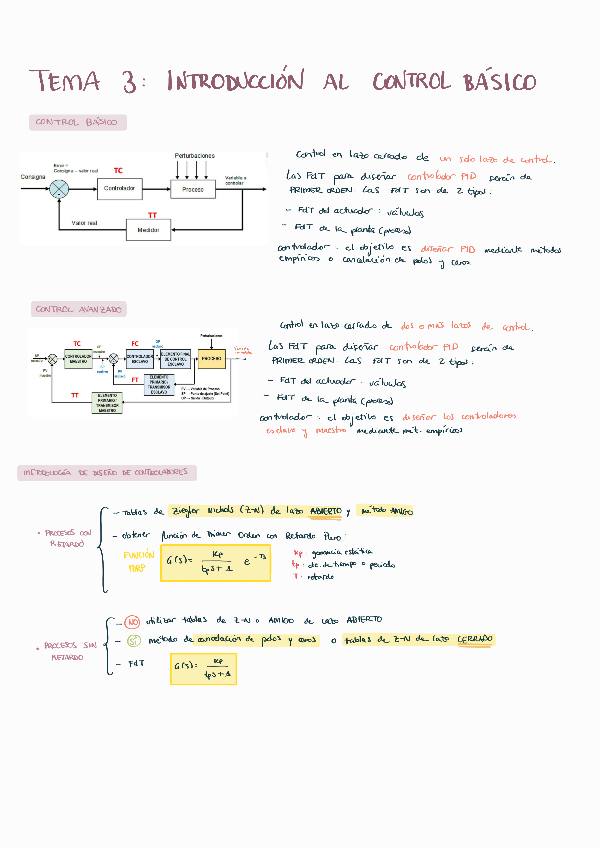 TEMA 3: INTRODUCCIÓN AL CONTROL BÁSICO
CONTROL BÁSICO
Perturbaciones
Error =
Consigna – valor real
TC
Consigna
Controlador
Proceso
Variable a
controlar
TT
Valor real
Medidor
Control en lazo cerrado de un solo lazo de control.
Las FdT para diseñar controlador PID serán de
PRIMER ORDEN. Las FdT son de 2 tipos:
– FdT del actuador: válvulas
– FdT de la planta (proceso)
controlador: el objetivo es diseñar PID mediante métodos
empíricos o cancelación de polos y ceros.
CONTROL AVANZADO
Perturbaciones
TC
FC
SP
maestro
CONTROLADOR
MAESTRO
CONTROLADOR
ESCLAVO
ELEMENTO FINAL
DE CONTROL
ESCLAVO
PROCESO
FT
ELEMENTO
PRIMARIO/
TRANSMISOR
ESCLAVO
TT
ELEMENTO
PRIMARIO/
TRANSMISOR
MAESTRO
PV — Variable de Proceso
SP – Punto de ajuste (Set Point)
OP – Salida - Output
Control en lazo cerrado de dos o más lazos de control.
Las FdT para diseñar controlador PID serán de
PRIMER ORDEN. Las FdT son de 2 tipos:
– FdT del actuador: válvulas
– FdT de la planta (proceso)
controlador: el objetivo es diseñar los controladores
esclavo y maestro mediante mét. empíricos
METODOLOGÍA DE DISEÑO DE CONTROLADORES
• PROCESOS CON
RETARDO
– Tablas de Ziegler Nichols (Z-N) de lazo ABIERTO y método AMIGO
– obtener función de Primer Orden con Retardo Puro:
FUNCIÓN
PORP
G(s) = Kp / (tps + 1) e^-Ts
Kp: ganancia estática
tp: cte. de tiempo o periodo
T: retardo
• PROCESOS SIN
RETARDO
– NO utilizar tablas de Z-N o AMIGO de lazo ABIERTO
– SÍ método de cancelación de polos y ceros o tablas de Z-N de lazo CERRADO
– FdT G(s) = Kp / (tps + 1)